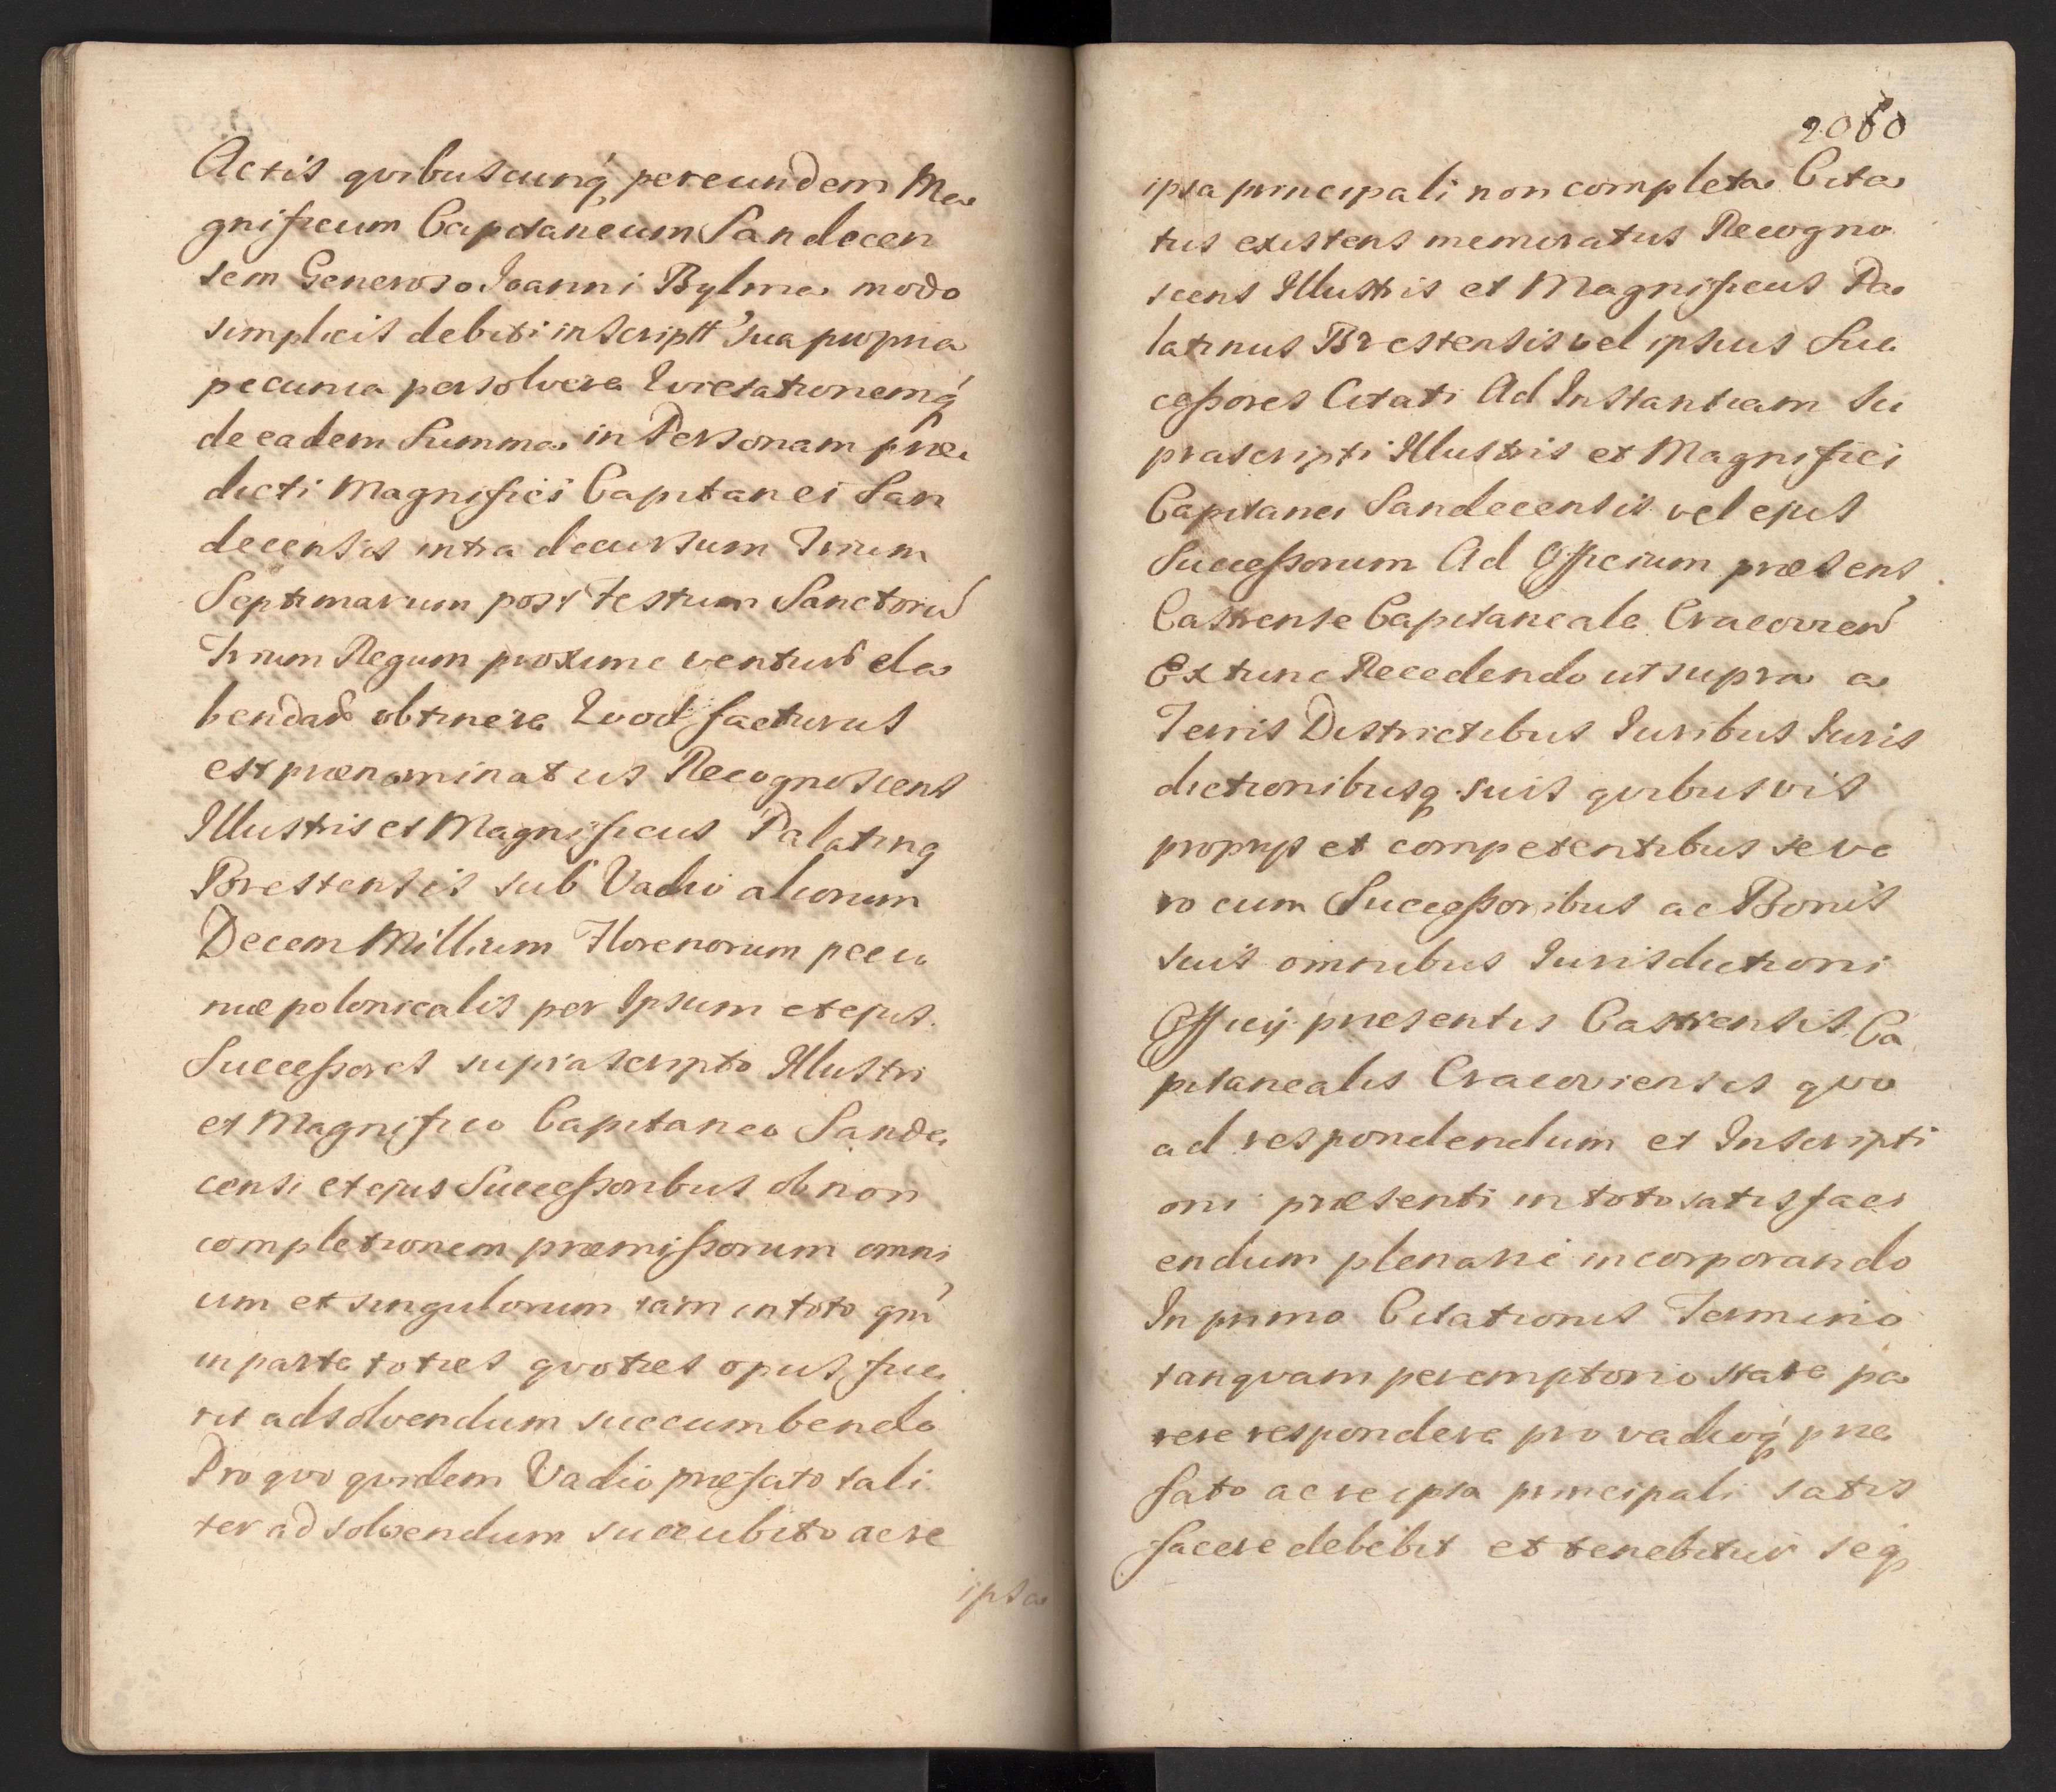 Actis qvibuscunq, per eundem Ma
gnificum Capitaneum Sandecen
sem Generoso Ioanni Bylina modo
simplicis debiti inscriptt' sua propria
pecunia persolvere Qvietationemq
de eadem Summa in Personam præ
dicti Magnifici Capitanei San
decensis intra decursum Trium
Septimanarum post Festum Sanctorū
Trium Regum proxime venturū ela
bendarū obtinere Qvod facturus
est prænominatus Recognoscens
Illustris et Magnificus Palatinq
Brestensis sub Vadio aliorum
Decem Millium Florenorum pecu
niæ polonicalis per Ipsum et ejus
Successores suprascripto Illustri
et Magnifico Capitaneo Sande
censi et ejus Successoribus ob non
completionem præmissorum omni
um et singulorum tam in toto qm̄
in parte toties qvoties opus fue
rit adsolvendum succumbendo
Pro qvo qvidem Vadio præfato tali
ter ad solvendum succubito ac re
ipsa
2060
ipsa principali non completa Cita
tus existens memoratus Recogno
scens Illustris et Magnificus Pa
latinus Brestensis vel ipsius Suc
cessores Citati Ad Instantiam su
prascripti Illustris et Magnifici
Capitanei Sandecensis vel ejus
Successorum Ad Officium præsens
Castrense Capitaneale Cracovien̄
Ex tunc Recedendo ut supra a
Terris Districtibus Iuribus Iuris
dictionibusq suis qvibusvis
proprijs et competentibus se ve
ro cum Successoribus ac Bonis
suis omnibus Iurisdictioni
Officij præsentis Castrensis Ca
pitanealis Cracoviensis qvo
ad respondendum et Inscripti
oni præsenti in toto satisfaci
endum plenarie incorporando
In primo Citationis Termino
tanqvam peremptorio stare pa
rere respondere pro vadioq præ
fato ac re ipsa principali satis
facere debebit et tenebitur seq